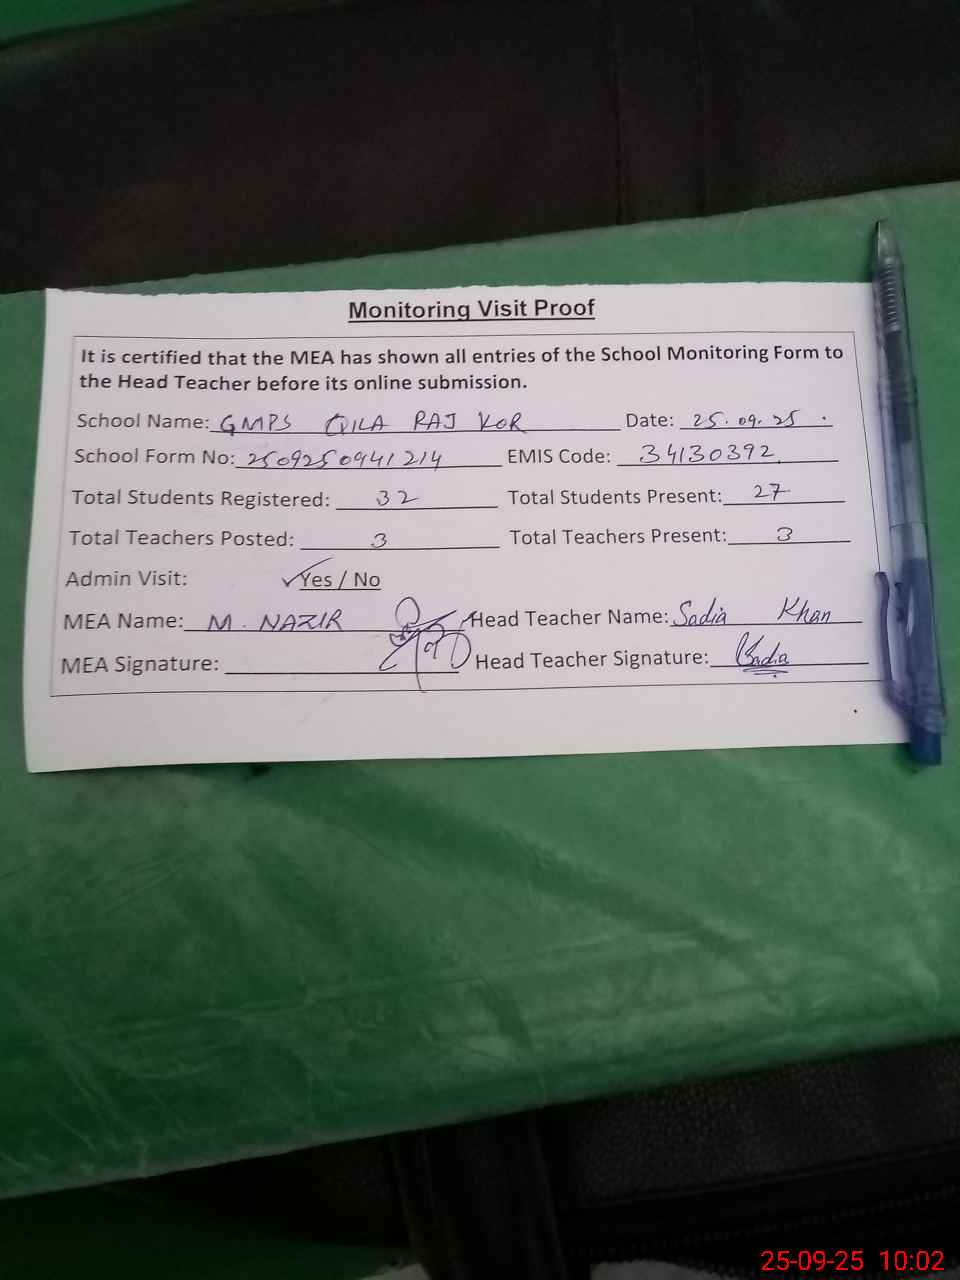 Monitoring Visit Proof
It is certified that the MEA has shown all entries of the School Monitoring Form to
the Head Teacher before its online submission.
School Name: GMPS QILA RAJ KOR Date: 25.09.25
School Form No: 2509250941214 EMIS Code: 34130392
Total Students Registered: 32 Total Students Present: 27
Total Teachers Posted: 3 Total Teachers Present: 3
Admin Visit: ✓Yes / No
MEA Name: M. NAZIR Head Teacher Name: Sadia Khan
MEA Signature: Head Teacher Signature: Sadia
25-09-25 10:02